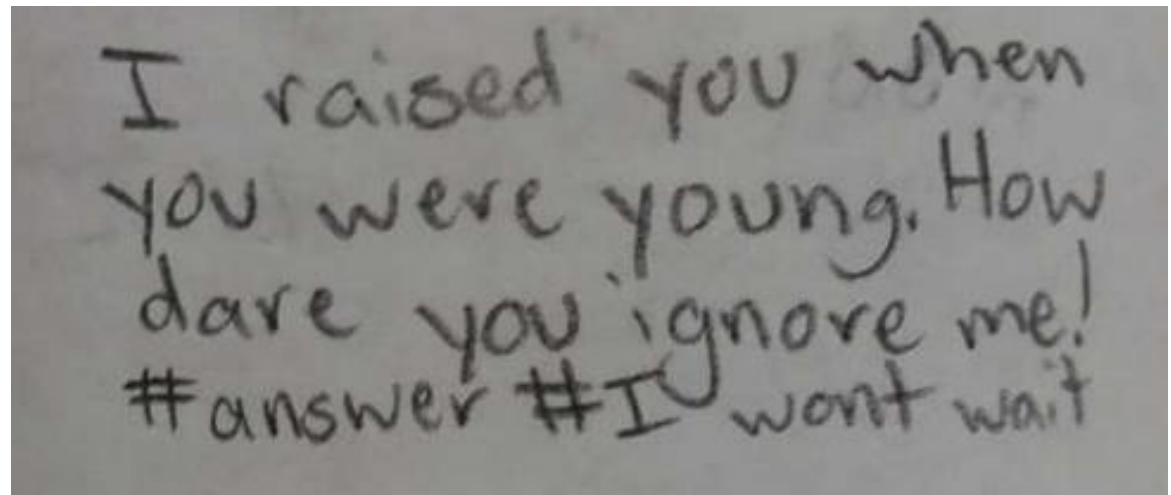 I raised you when
you were young. How
dare you ignore me!
#answer #I wont wait